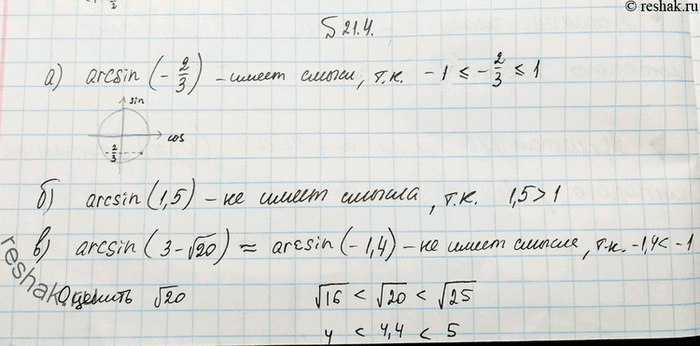 © reshak.ru
№21.4.
а) arcsin (-2/3) - имеет смысл, т.к. -1 ≤ -2/3 ≤ 1
sin
cos
-2/3
б) arcsin (1,5) - не имеет смысла, т.к. 1,5 > 1
в) arcsin (3-√20) ≈ arcsin (-1,4) - не имеет смысла, т.к. -1,4 < -1
reshak.ru
Оценить √20 √16 < √20 < √25
4 < 4,4 < 5